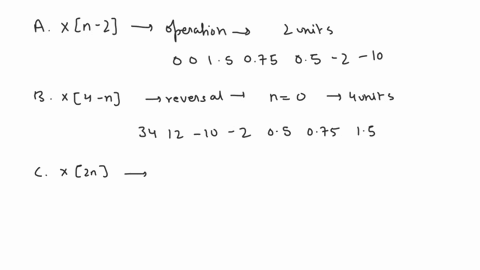 A. x[n-2] → operation → 2 units
0 0 1.5 0.75 0.5 -2 -10
B. x[4-n] → reversal → n=0 → 4 units
34 12 -10 -2 0.5 0.75 1.5
C. x[2n] →